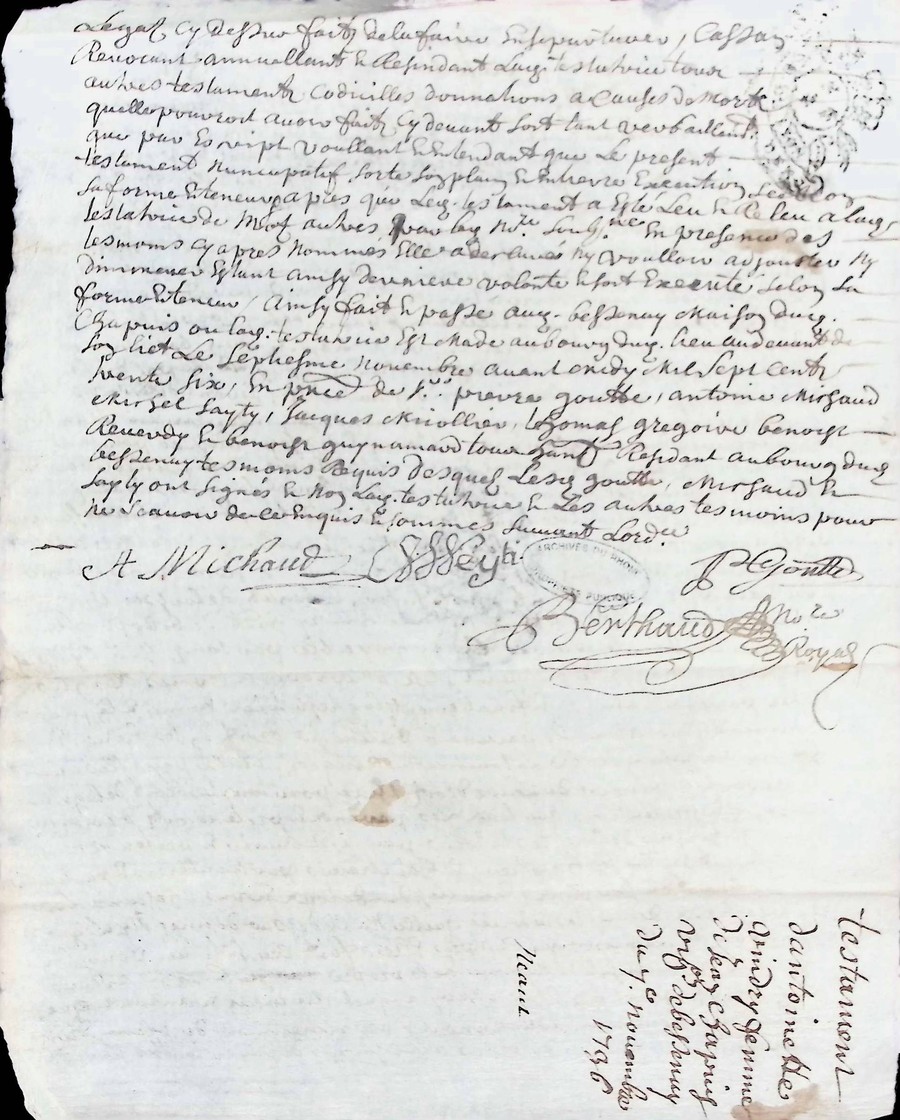 Legat cy dessus faits de la faire Ensepulturer, Cassan
Revocant annullant & Rescindant Laq. testatrice tour
autres testaments codicilles donnations a causes de mort
quelle pourroit avoir fait cy devant soit tant verballent.
que par Escript voullant & Entendant que Le present
testament Nuncupatif sorte son plain & Entierre Execution selon
sa forme & teneur apres que Le testament a Esté Leu & Releu a laq.
testatrice de Mot a autres par Noy No.re souss.né En presence des
tesmoins cy apres nommés Elle a declarés ny voulloir adjouster ny
diminuer Estant ainsy derniere volonté & soit Execute selon sa
forme & teneur, ainsy fait & passé aud. bessenay Maison dud.
Chapuis ou laq. testatrice Est Malade au bourg dud. lieu au devant de
son liet Le septiesme novembre avant midy Mil sept cent
trente six, En p.nce de s.rs pierre goutte, antoine Michaud
Michel Sayty, Jacques Mirollier, thomas gregoire benoist
Reverdy & benoist guynamard tous Residant au bourg dud
bessenay tesmoins Requis desquels Lesd goutte, Michaud &
Sayty ont signés & non Laq. testatrice & Les autres tesmoins pour
ne scavoir de ce Enquis & sommes suivant Lord.ce
A Michaud
P Goutte
ARCHIVES DU RHONE
PUBLIQUE
Berthaud No.re
Royal
testament
dantoinette
Vindry femme
de Jean Chapuis
vig.on de bessenay
du 7.e novembre
1736
Neant